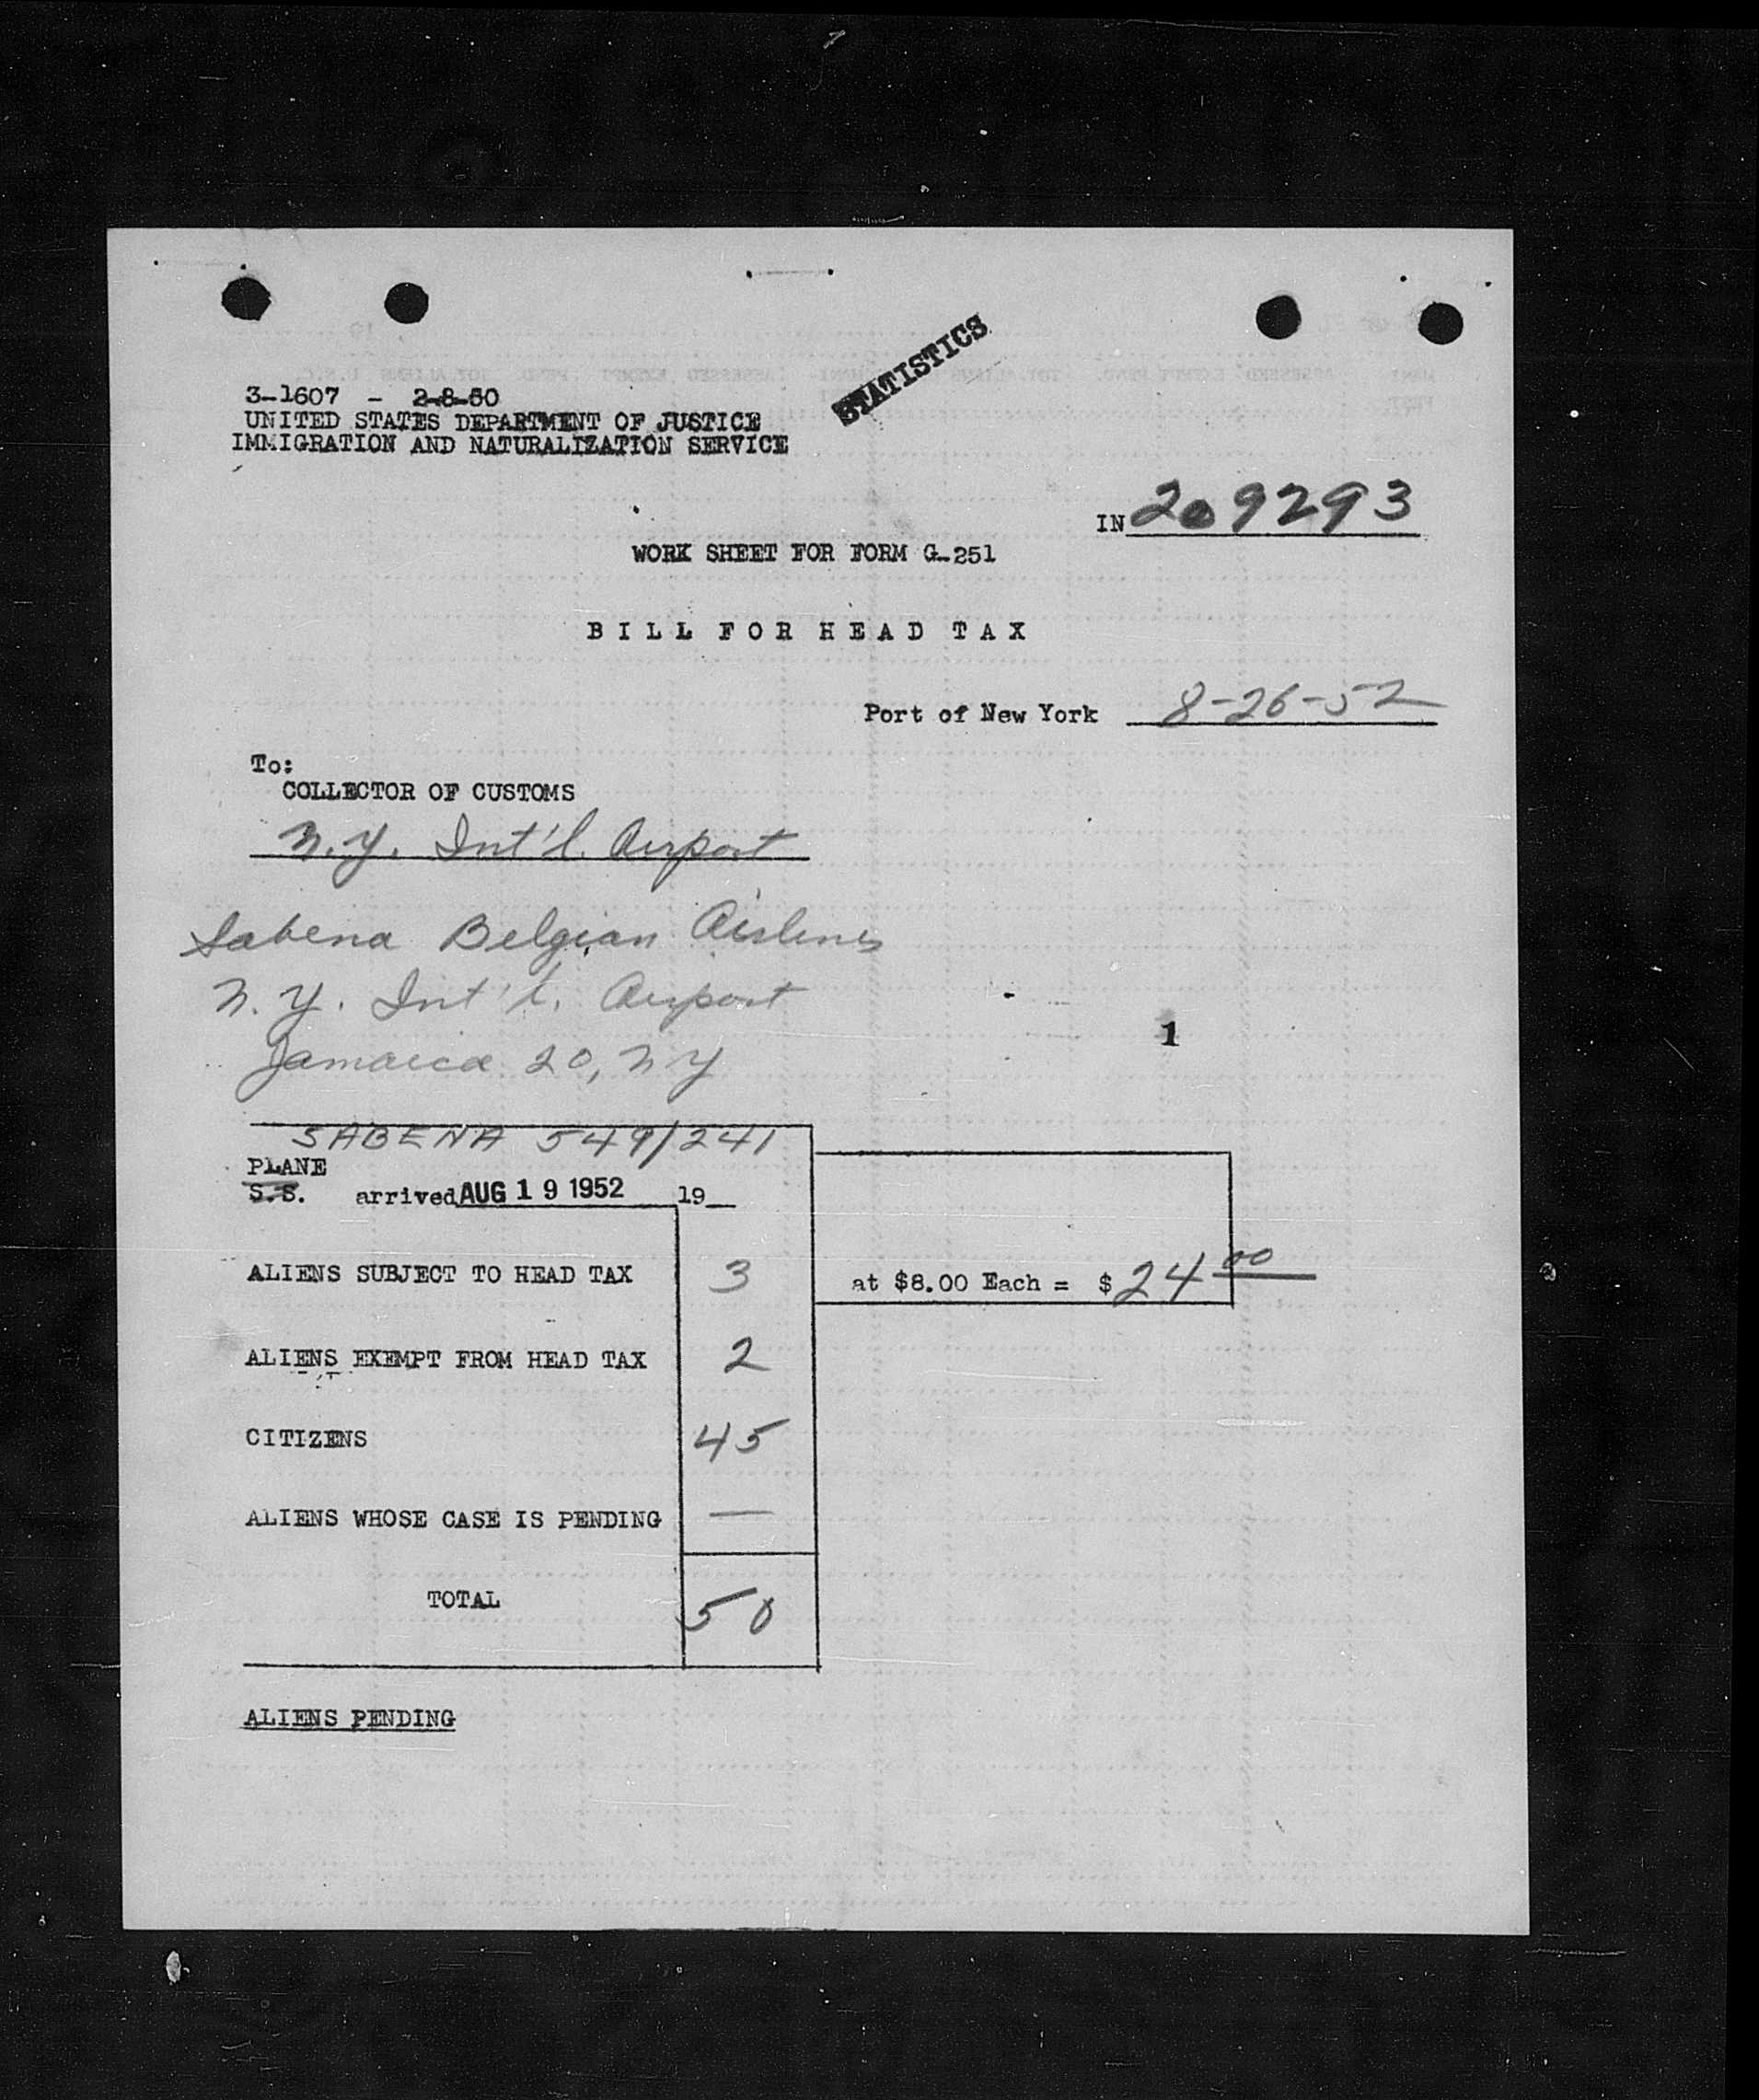 STATISTICS
3-1607 - 2-8-50
UNITED STATES DEPARTMENT OF JUSTICE
IMMIGRATION AND NATURALIZATION SERVICE
IN 209293
WORK SHEET FOR FORM G-251
BILL FOR HEAD TAX
Port of New York 8-26-52
To:
COLLECTOR OF CUSTOMS
N.Y. Int'l. Airport
Sabena Belgian Airlines
N.Y. Int'l. Airport
1
Jamaica 20, NY
SABENA 549/241
PLANE
S.S. arrived AUG 19 1952 19
ALIENS SUBJECT TO HEAD TAX 3 at $8.00 Each = $24 00
ALIENS EXEMPT FROM HEAD TAX 2
CITIZENS 45
ALIENS WHOSE CASE IS PENDING —
TOTAL 50
ALIENS PENDING